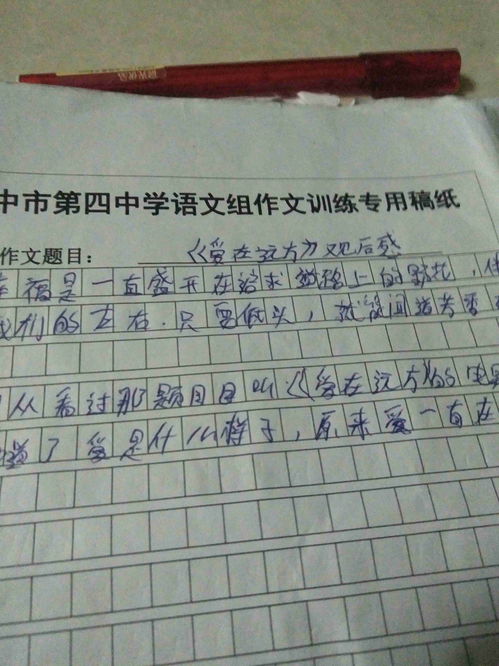 中市第四中学语文组作文训练专用稿纸
作文题目：《爱在远方》观后感
福是一直盛开在追求道路上的野花，
我们的左右．只要低头，就能闻道芳香
从看过那题目叫《爱在远方》的电影
道了爱是什么样子，原来爱一直在